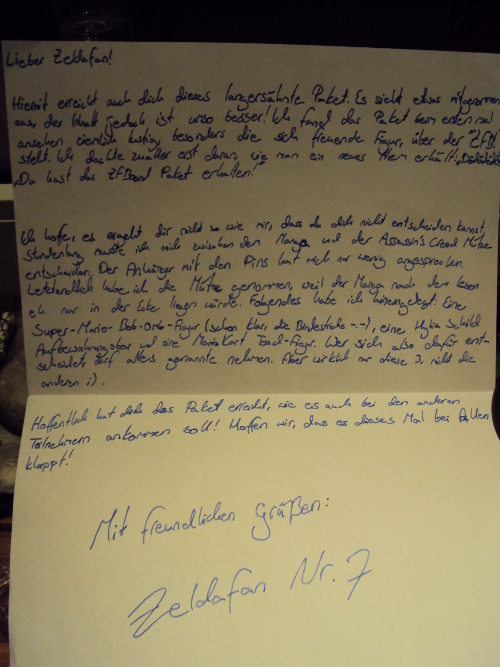 Lieber Zeldafan!
Hiermit erreicht auch dich dieses langersähnte Paket. Es sieht etwas mitgenommen
aus, der Inhalt jedoch ist umso besser! Ich fand das Paket beim ersten mal
ansehen ziemlich lustig, besonders die sich freuende Figur, über der "ZFB"
steht. Ich dachte zuerst daran, wie man ein neues Item erhält:
„Du hast das ZFBoard Paket erhalten!"
Ich hoffe, es ergeht dir nicht so wie mir, dass du dich nicht entscheiden kannst,
Stundenlang musste ich mich zwischen dem Manga und der Assassin's Creed Mütze
entscheiden. Der Anhänger mit den Pins hat mich nur wenig angesprochen.
Letztendlich habe ich die Mütze genommen, weil der Manga nach dem lesen
eh nur in der Ecke liegen würde. Folgendes habe ich hineingelegt: Eine
Super-Mario-Bob-Omb-Figur (schon klar, die Bindestriche -.-), eine Hylia Schild
Aufbewahrungsbox und eine MarioKart Toad-Figur. Wer sich also dafür ent-
scheidet, darf alles genannte nehmen. Aber wirklich nur diese 3, nicht die
anderen ;).
Hoffentlich hat dich das Paket erreicht, wie es auch bei den anderen
Teilnehmern ankommen soll! Hoffen wir, dass es dieses Mal bei Allen
klappt!
Mit freundlichen Grüßen:
Zeldafan Nr. 7